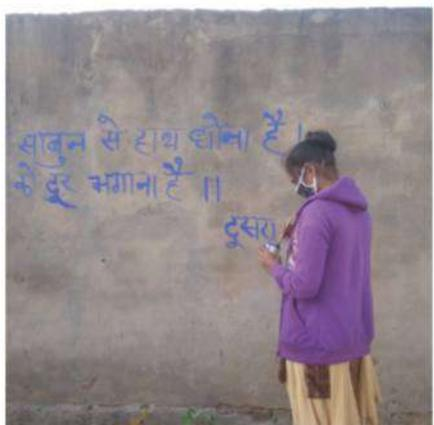 साबुन से हाथ धोना है।
को दूर भगाना है ॥
दूसरा